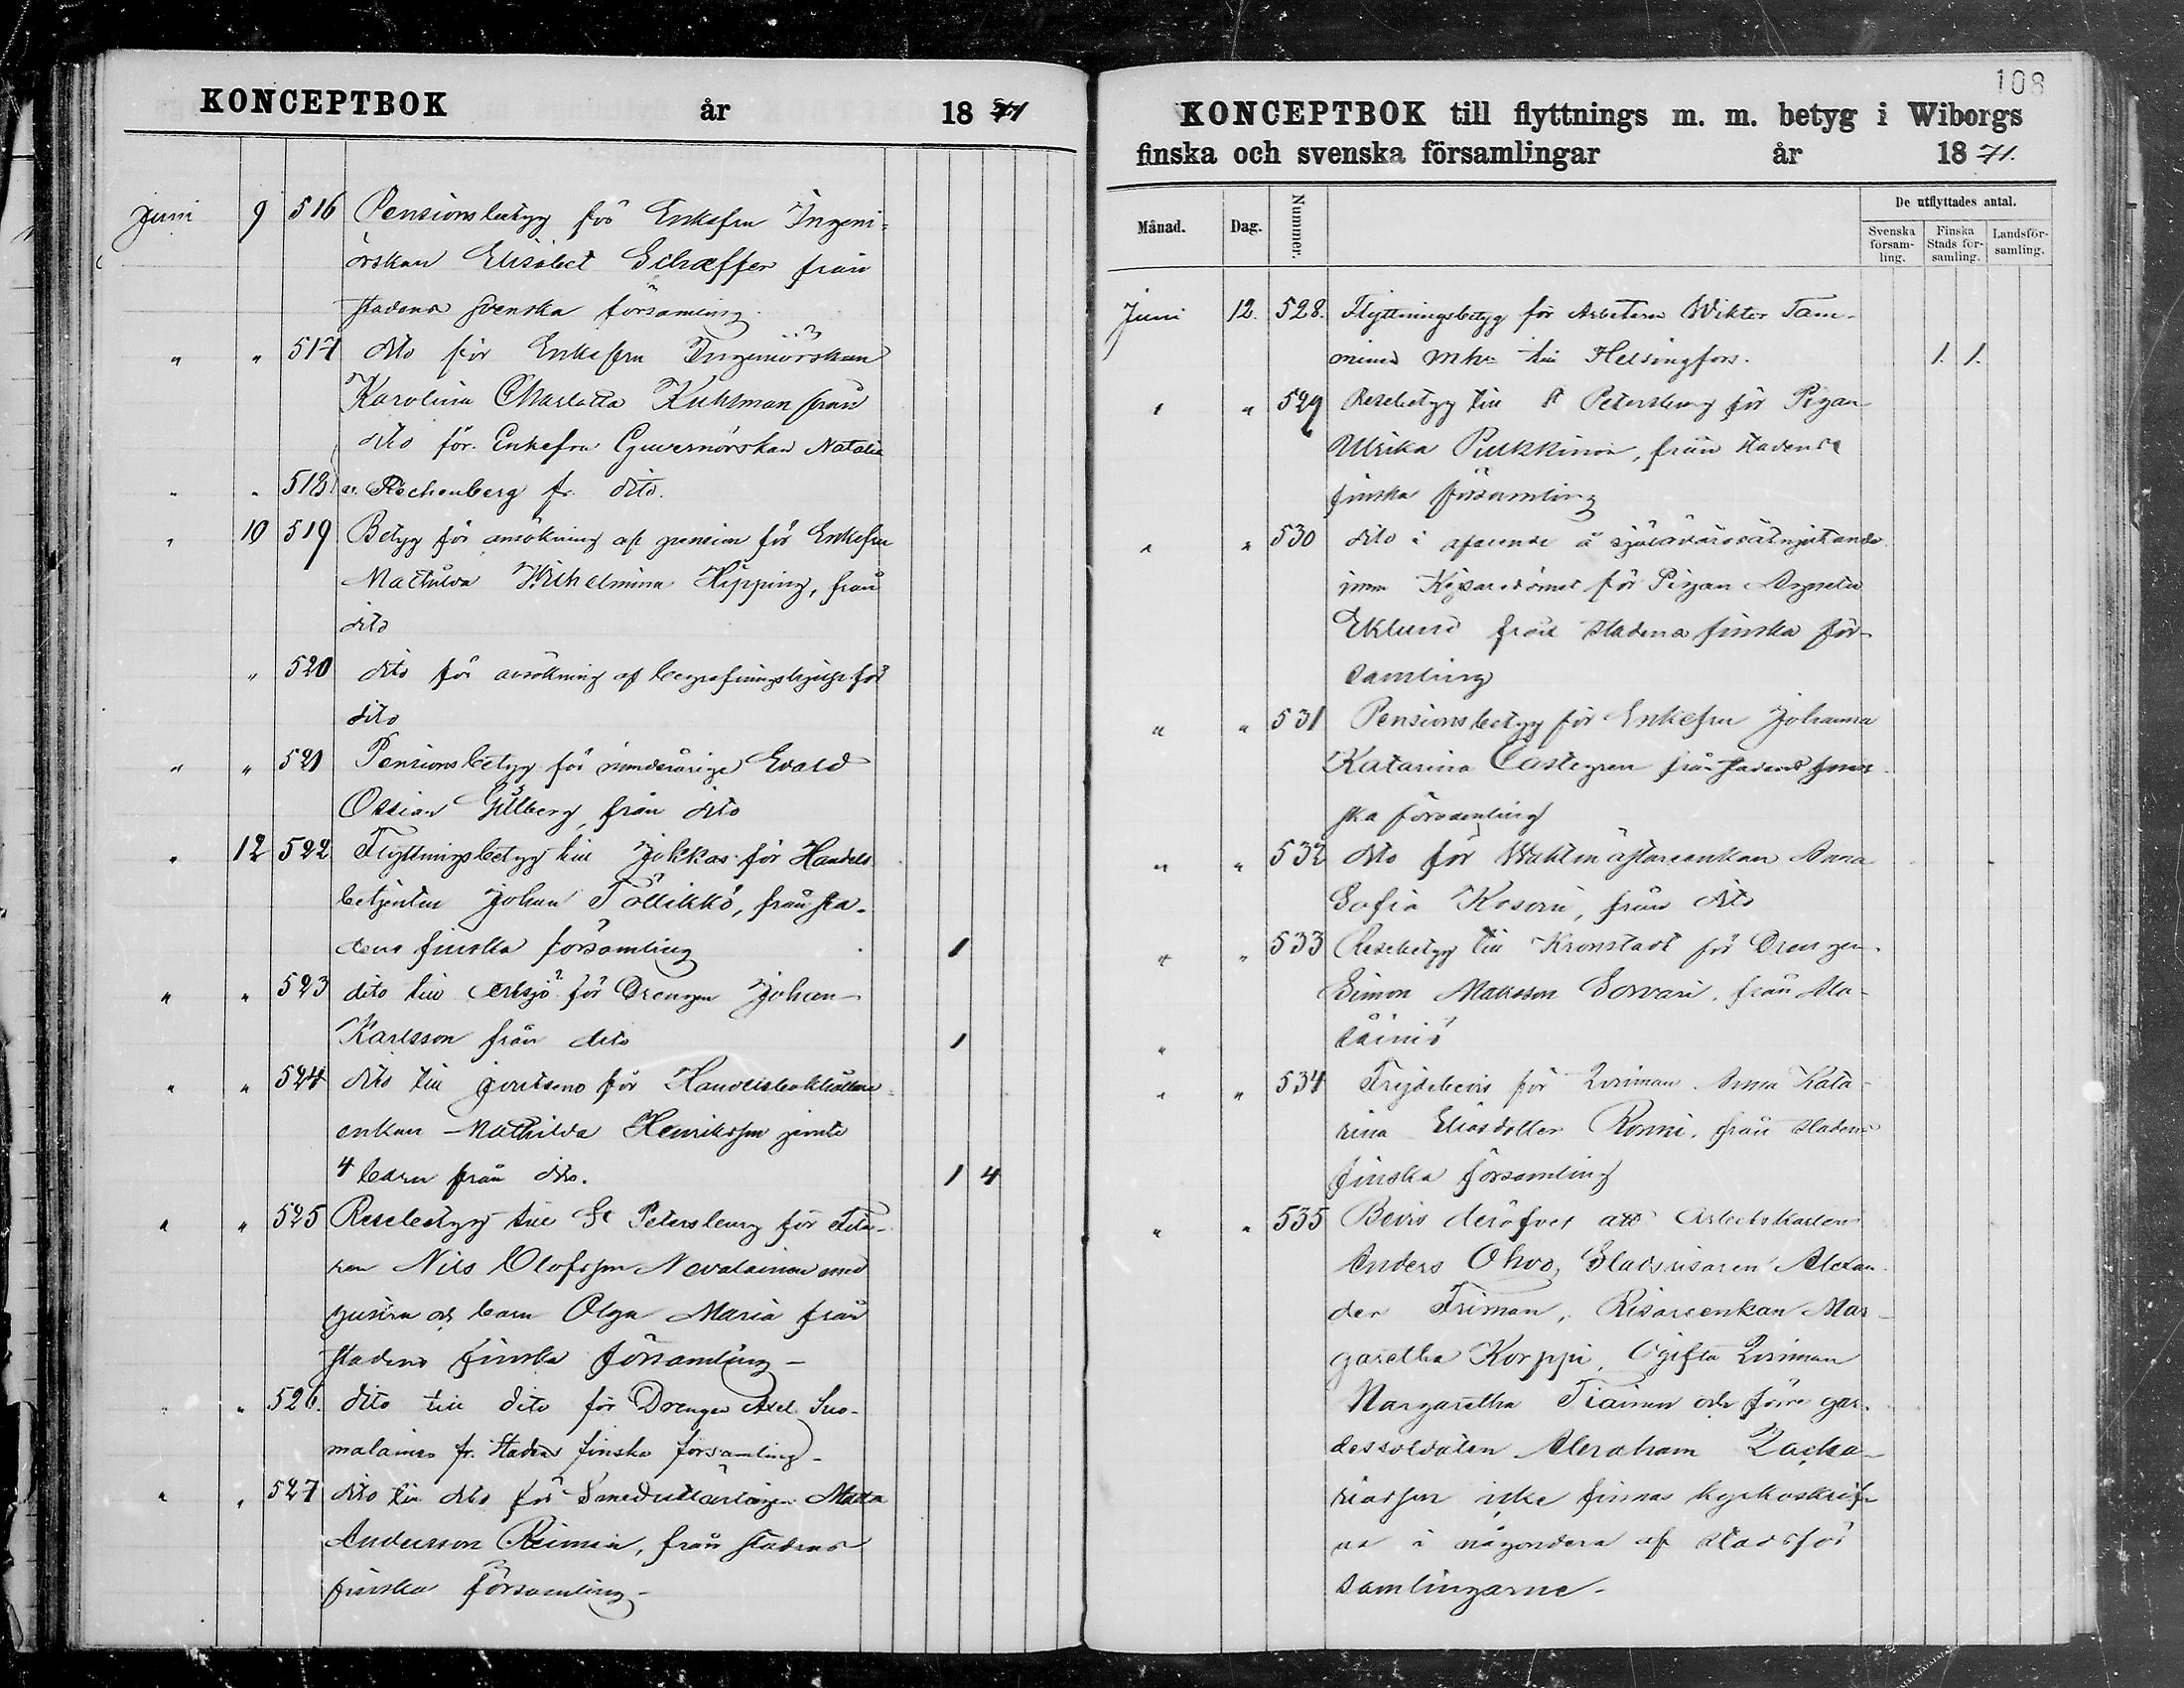 KONCEPTBOK år 1871
Juni 9 516 Pensionsbetyg för Enkefru Ingeni-
örskan Elisabet Schæffer från
stadens svenska församling.
" " 517 dito för Enkefru Ingeniörskan
Karolina Charlotta Kuhlman från
dito för Enkefru Guvernörskan Natalia
" " 518 v. Rechenberg fr. dito.
" 10 519 Betyg för ansökning af pension för Enkefru
Mathilda Wilhelmina Hipping, från
dito
" 520 dito för ansökning af begrafningshjelp för
dito
" " 521 Pensionsbetyg för minderårige Evald
Ossian Gyllberg, från dito
" 12 522 Flyttningsbetyg till Jokkas för Handels
betjenten Johan Töllikkö, från sta-
dens finska församling 1
" " 523 dito till för Drengen Johan
Karlsson från dito 1
" " 524 dito till Joutseno för
enkan Mathilda Henriksson jemte
4 barn från dito. 1 4
" " 525 Resebetyg till St Petersburg för
Nils Olofsson Nevalainen med
hustru och barn Olga Maria från
stadens finska församling -
" " 526. dito till dito för Drengen Axel Suo-
malainen fr. stadens finska församling -
" " 527 dito till dito för Smedsutlärlingen Matts
Andersson Reiman, från stadens
finska församling -
108
KONCEPTBOK till flyttnings m. m. betyg i Wiborgs
finska och svenska församlingar år 1871.
Månad. Dag. Nummer. De utflyttades antal.
Svenska försam-ling. Finska Stads för-samling. Landsför-samling.
Juni 12. 528. Flyttningsbetyg för Arbetaren Wiktor Tam-
minen mhu till Helsingfors. 1. 1.
" " 529 Resebetyg till St Petersburg för Pigan
Ulrika Pukkinen, från stadens
finska församling
" " 530 dito i afseende å själavårdsåtnjutande
inom Kejsaredömet för Pigan Agneta
Eklund från stadens finska för-
samling
" " 531 Pensionsbetyg för Enkefru Johanna
Katarina Castegren från stadens fin-
ska församling
" " 532 dito för Waktmästareenkan Anna
Sofia Kosoni, från dito
" " 533 Resebetyg till Kronstadt för Drengen
Simon Mattsson Sorvari, från
"
" " 534 Frejdebevis för Qvinnan Anna Kata-
rina Eliasdotter Ronni, från stadens
finska församling
" " 535 Bevis deröfver att Arbetskarlen
Anders Ohvo, Gladsrisaren Alexan-
der Friman, Risareenkan Mar-
garetha Korppi, Ogifta Qvinnan
Margaretha Tiainen och förre gar-
dessoldaten Abraham Zacha-
riasson icke finnas kyrkoskrif-
na i någondera af stadsför
samlingarne -